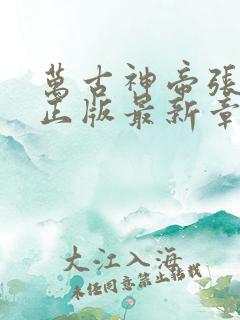 萬古神帝張
正版最新章
大江入海
未经同意禁止转载